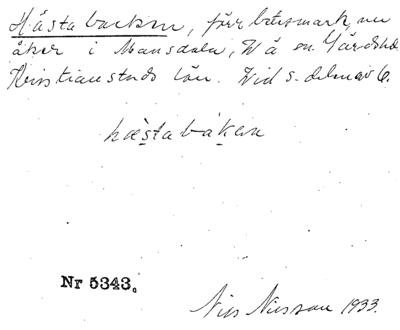 Hästabacken, förr betesmark, nu
åker i Mansdala, V å en Gärds
Kristianstads län. Vid s. delen av 6.
hæstabakan
Nr 5343.
Nils Nilsson 1933.